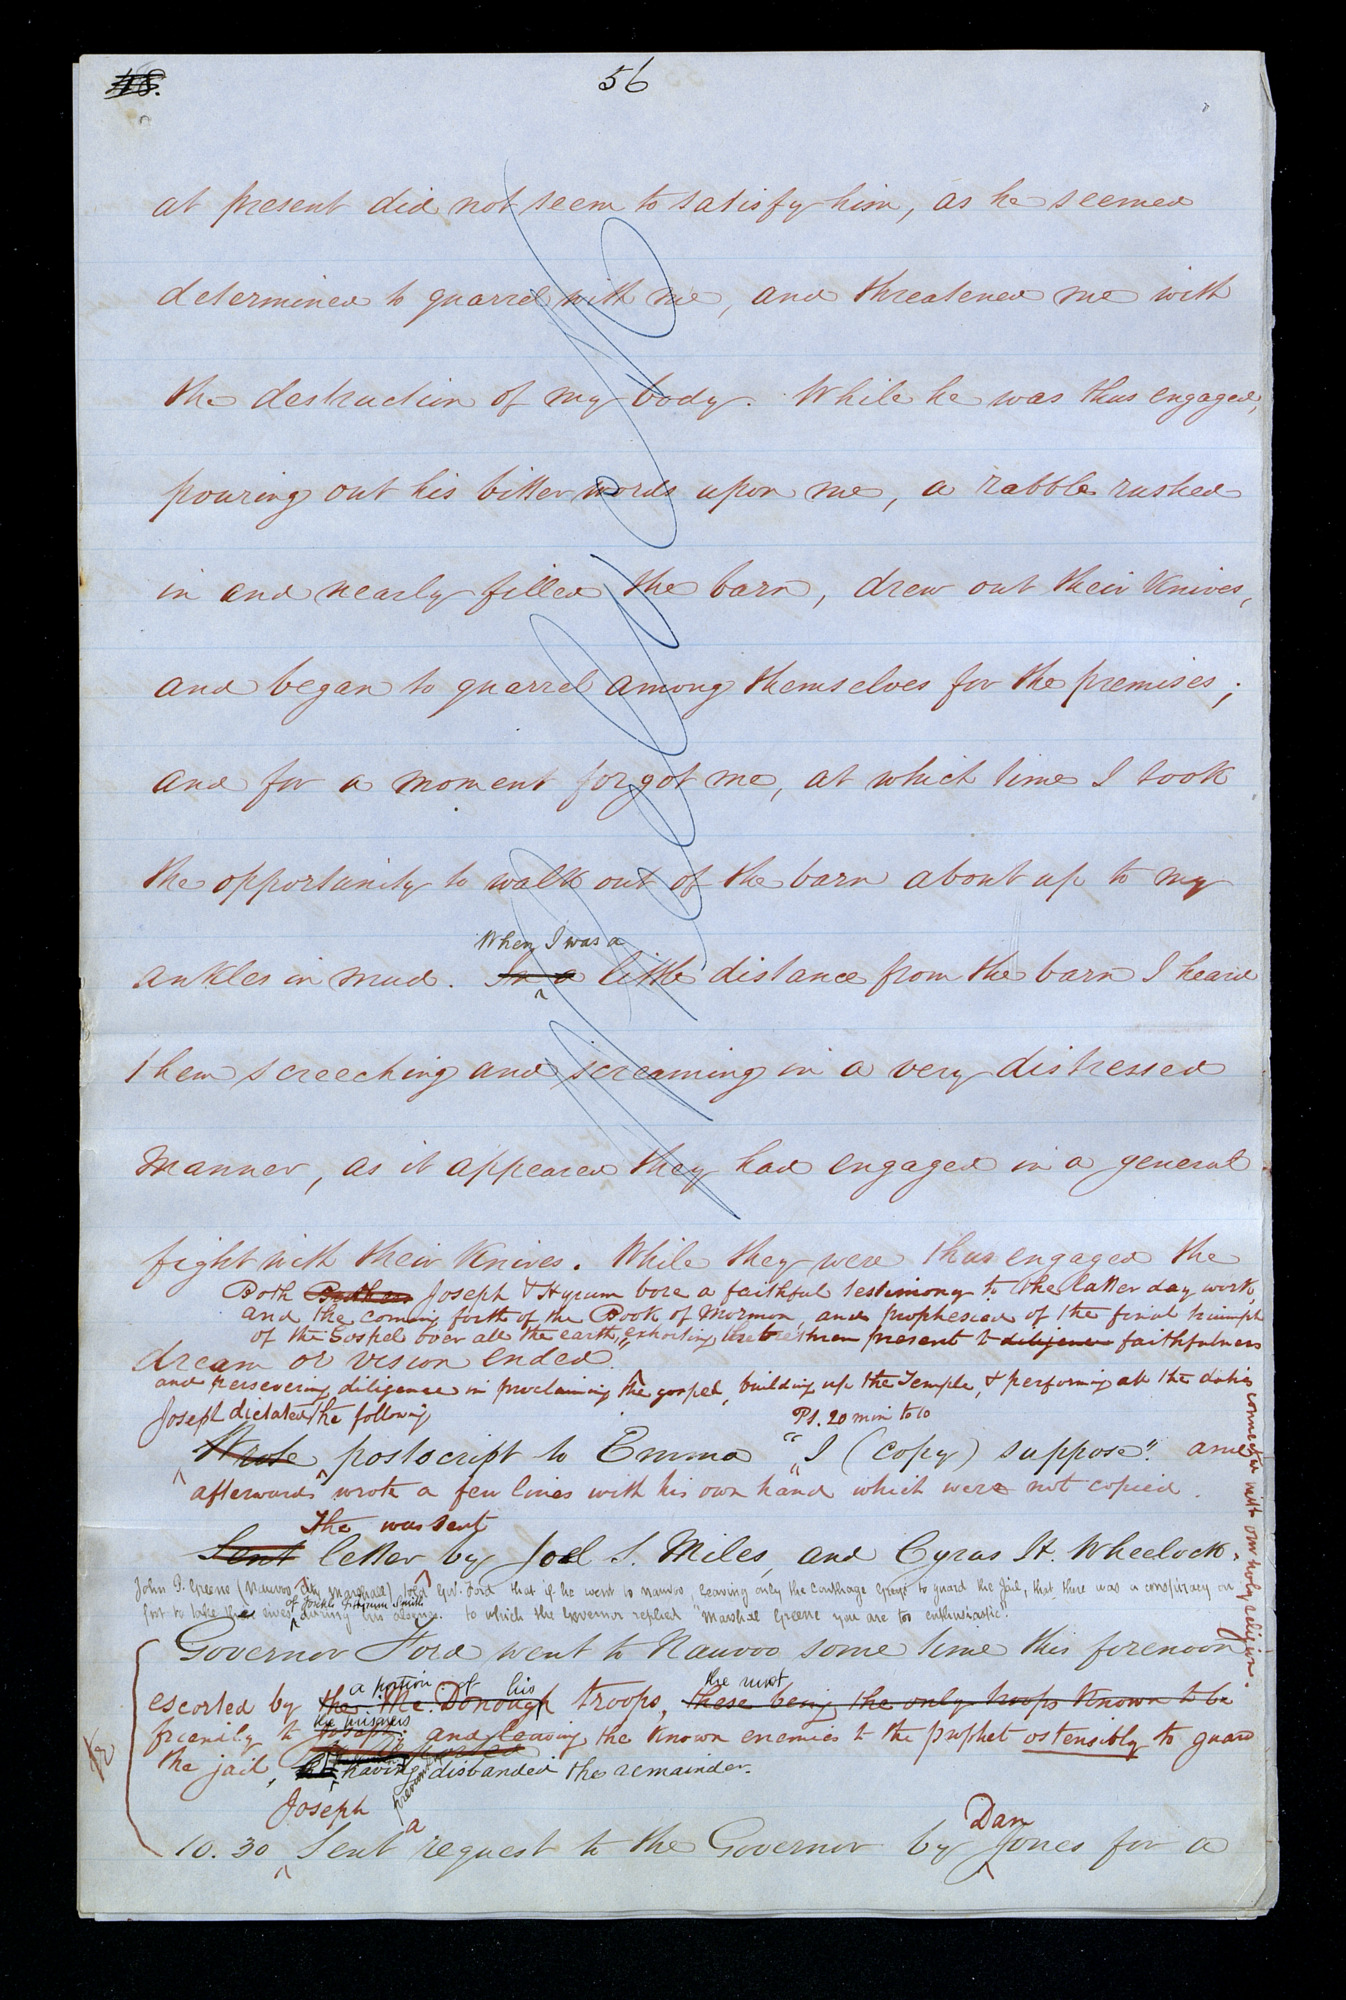 48.
56
at present did not seem to satisfy him, as he seemed
determined to quarrel with me, and threatened me with
the destruction of my body. While he was thus engaged,
pouring out his bitter words upon me, a rabble rushed
in and nearly filled the barn, drew out their knives,
and began to quarrel among themselves for the premises;
and for a moment forgot me, at which time I took
the opportunity to walk out of the barn about up to my
When I was a
ankles in mud. In a little distance from the barn I heard
them screeching and screaming in a very distressed
manner, as it appeared they had engaged in a general
fight with their knives. While they were thus engaged the
Both Joseph & Hyrum bore a faithful testimony to the latter day work,
and the coming forth of the Book of Mormon, and prophesied of the final triumph
of the Gospel over all the earth, exhorting the brethren present to diligence faithfulness
dream or vision ended."
and persevering diligence in proclaiming the gospel, building up the Temple, & performing all the duties
connected with our holy religion.
Joseph dictated the following
P.S. 20 min to 10
Wrote postscript to Emma "I (copy) suppose". and
afterwards wrote a few lines with his own hand which were not copied.
The was sent
Sent letter by Joel S. Miles, and Cyrus H. Wheelock.
John P. Greene (Nauvoo City Marshall) told Gov. Ford that if he went to Nauvoo, leaving only the Carthage Greys to guard the Jail, that there was a conspiracy on
of Joseph & Hyrum Smith
foot to take the lives during his absence. to which the Governor replied "Marshal Greene you are too enthusiastic".
Governor Ford went to Nauvoo some time this forenoon
a portion of his the most
escorted by the Mc.Donough troops, these being the only troops known to be
the prisoners
friendly to and leaving the known enemies to the prophet ostensibly to guard
the jail, having disbanded the remainder.
previously
Joseph a Dan
10.30 Sent request to the Governor by Jones for a